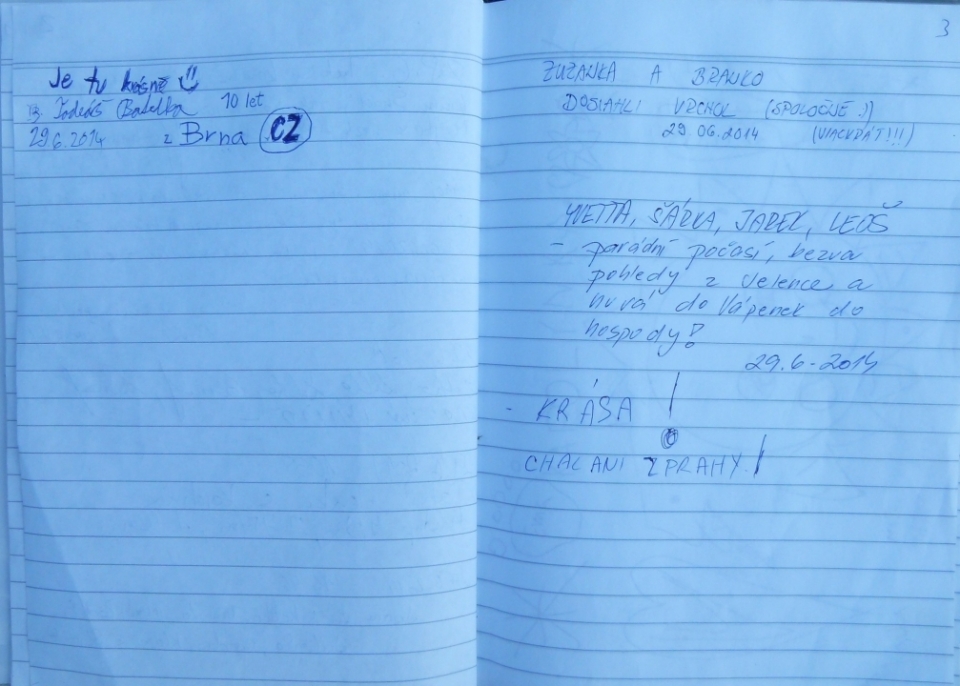 Je tu krásně
Tadeáš 10 let
29.6.2014 z Brna CZ
3
ZUZANKA A BRANKO
DOSIAHLI VRCHOL (SPOLOČNE!)
29 06.2014 (VIACKRÁT!!!)
YVETTA, ŠÁRKA, JAREK, LEOŠ
- parádní počasí, bezva
pohledy z Velence a
hurá do Vápenek do
hospody!
29.6-2014
- KRÁSA !
CHALANI Z PRAHY!